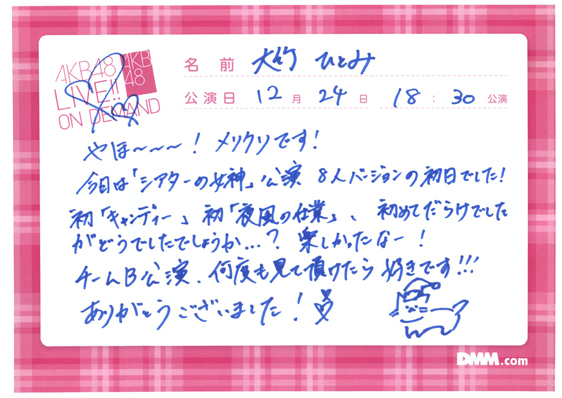 AKB48
LIVE!!
ON DEMAND
AKB
48
名前 大竹 ひとみ
公演日 12月 24日 18:30公演
やほ〜〜〜! メリクリです!
今日は「シアターの女神」公演 8人バージョンの初日でした!
初「キャンディー」初「夜風の仕業」、初めてだらけでした
がどうでしたでしょうか…? 楽しかったなー!
チームB公演、何度も見て頂けたら 好きです!!!
ありがとうございました!
DMM.com